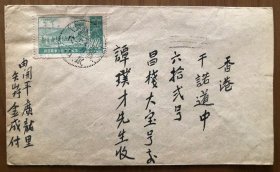 香港
干諾道中
六拾弍号
昌棧大宝号交
譚璞才先生收
由開平廣龍里
金成付